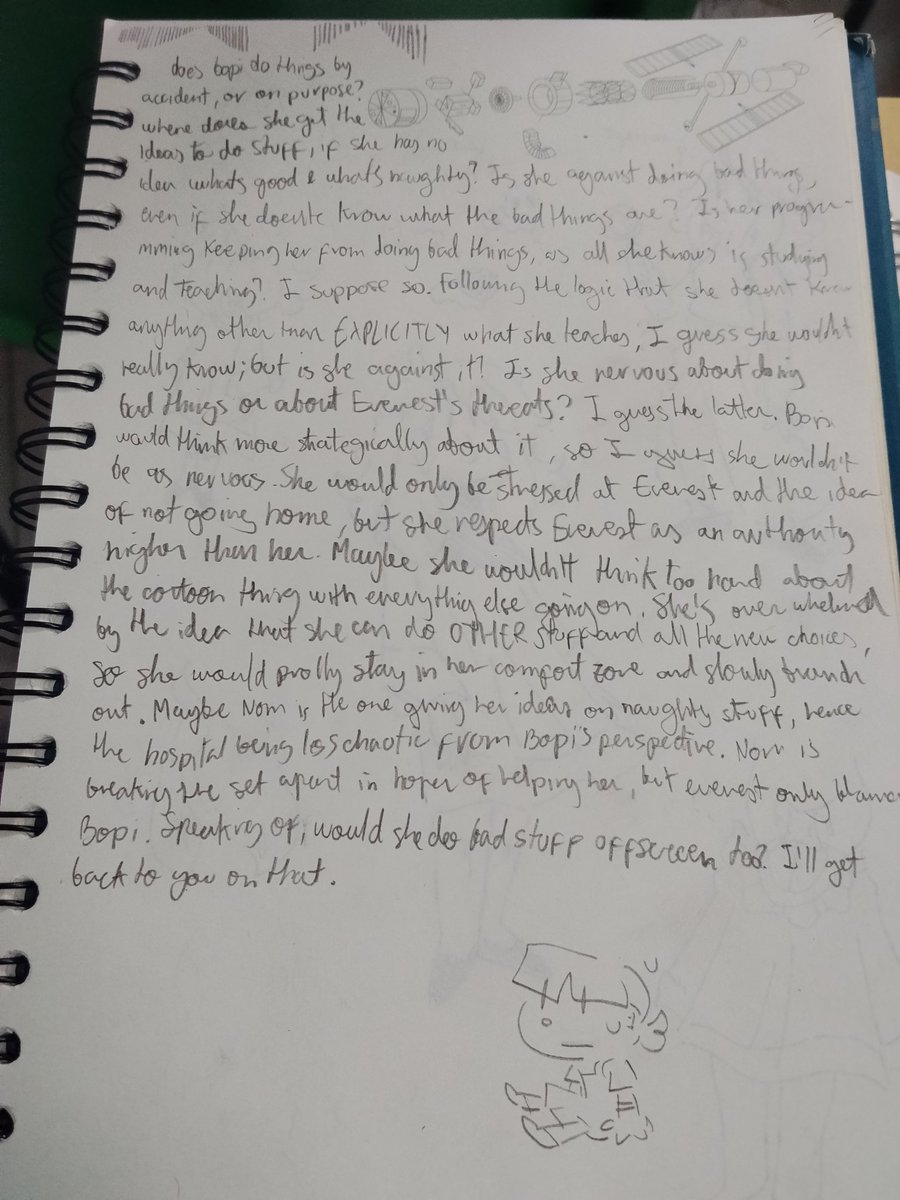 does bopi do things by
accident, or on purpose?
where does she get the
ideas to do stuff, if she has no
idea whats good & whats naughty? Is she against doing bad things,
even if she doesnt know what the bad things are? Is her progra-
mming keeping her from doing bad things, as all she knows is studying
and teaching? I suppose so. Following the logic that she doesnt know
anything other than EXPLICITLY what she teaches, I guess she wouldn't
really know; but is she against it? Is she nervous about doing
bad things or about Everest's threats? I guess the latter. Bopi
would think more strategically about it, so I guess she wouldn't
be as nervous. She would only be stressed at Everest and the idea
of not going home, but she respects Everest as an authority
higher than her. Maybe she wouldn't think too hard about
the cartoon thing with everything else going on. She's overwhelmed
by the idea that she can do OTHER stuff and all the new choices,
so she would prolly stay in her comfort zone and slowly branch
out. Maybe Nom is the one giving her ideas on naughty stuff, hence
the hospital being less chaotic from Bopi's perspective. Nom is
breaking the set apart in hopes of helping her, but everest only blames
Bopi. Speaking of, would she do bad stuff offscreen too? I'll get
back to you on that.